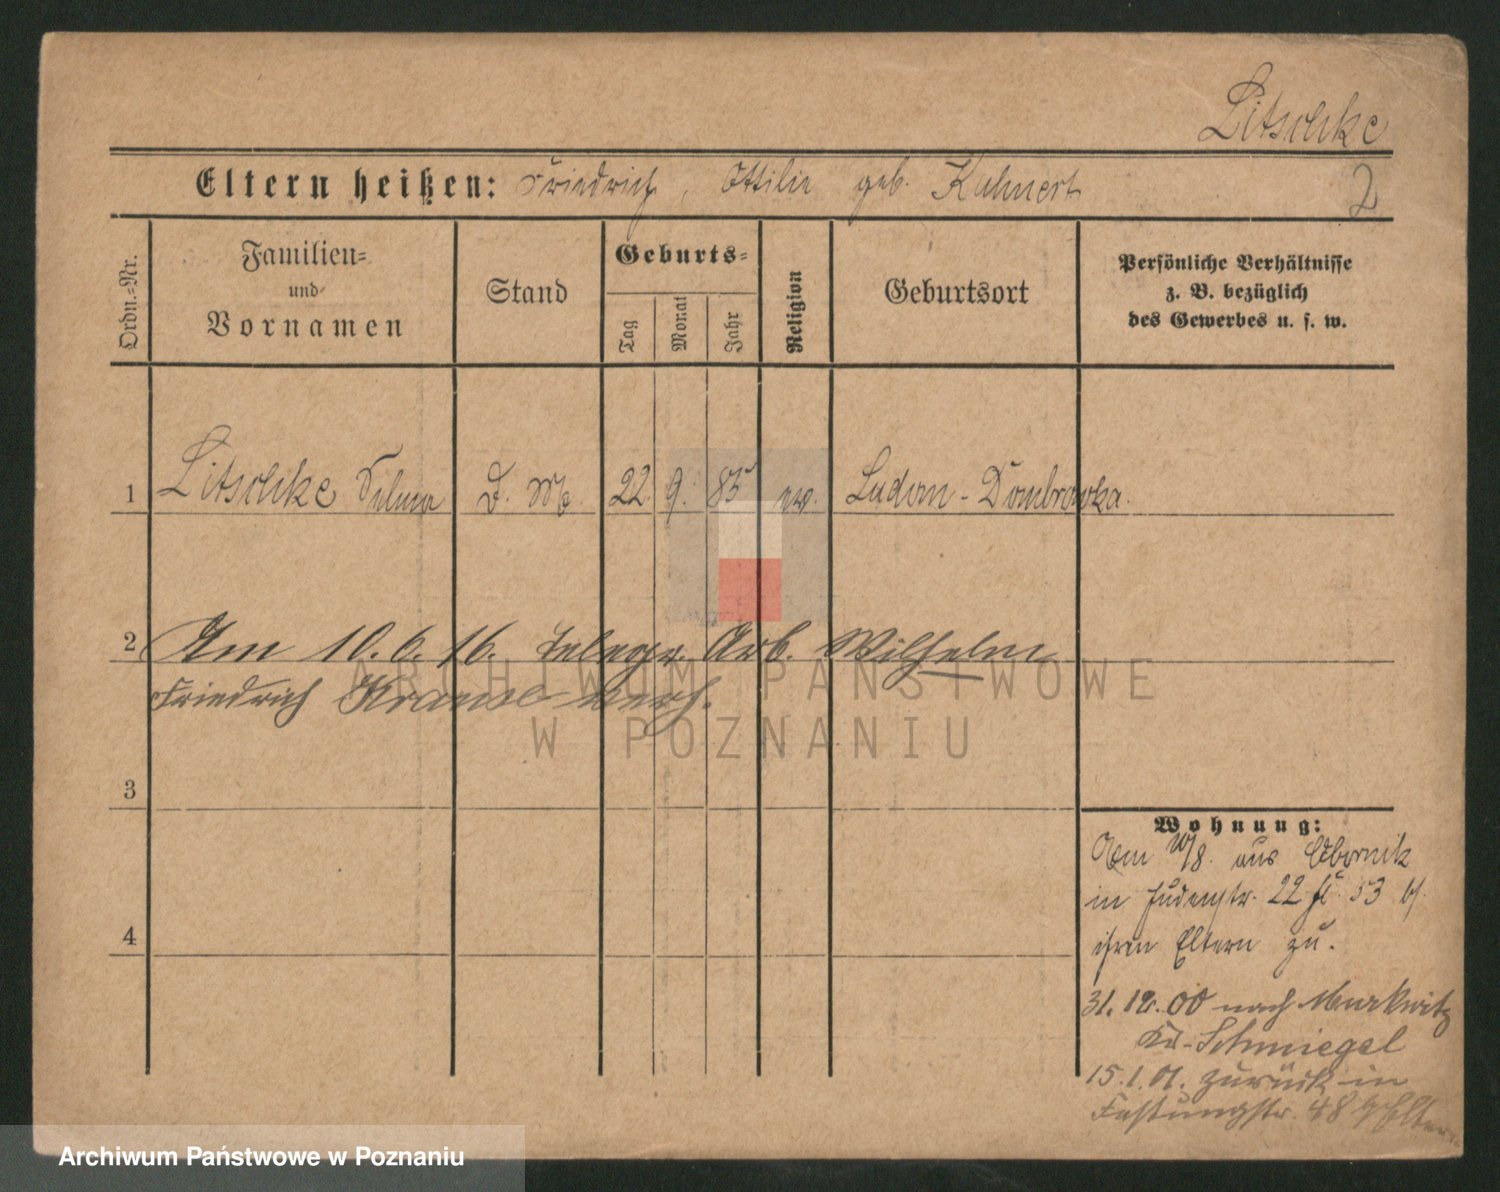 Litschke
Eltern heißen: Friedrich, Ottilie geb. Kuhnert
2
Ordn.-Nr.
Familien-
und
Vornamen
Stand
Geburts-
Tag
Monat
Jahr
Religion
Geburtsort
Persönliche Verhältnisse
z. B. bezüglich
des Gewerbes u. s. w.
1 Litschke Selma D. M. 22. 9. 85 ev. Ludom-Dombrowka.
2 Am 10.6.16. Telegr. Arb. Wilhelm
Friedrich Krause verh.
3
4
Wohnung:
Am 10/8. aus Obornik
in Judenstr. 22 53 b/.
ihren Eltern zu.
31.12.00 nach Murkwitz
Kr. Schmiegel
15.1.01. zurück in
Festungstr. 48 Eltern
ARCHIWUM PAŃSTWOWE
W POZNANIU
Archiwum Państwowe w Poznaniu